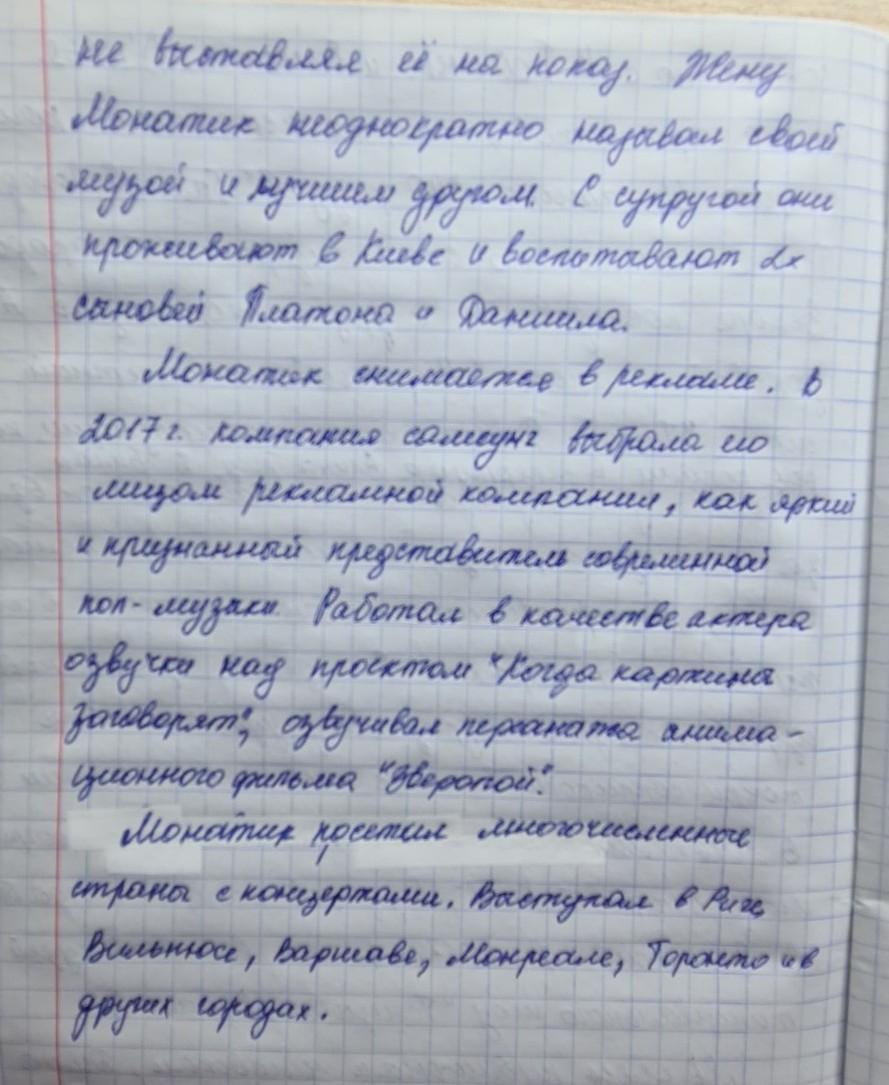 не выставляя её на показ. Жену
Монатик неоднократно называл своей
музой и лучшим другом. С супругой они
проживают в Киеве и воспитывают 2х
сыновей Платона и Даниила.
Монатик снимается в рекламе. В
2017г. компания самсунг выбрала его
лицом рекламной компании, как яркий
и признанный представитель современной
поп-музыки. Работал в качестве актера
озвучки над проектом "Когда картина
заговорят", озвучивал персонажа анима-
ционного фильма "Зверопой".
Монатик посетил многочисленные
страны с концертами. Выступал в Риге,
Вильнюсе, Варшаве, Монреале, Торонто и в
других городах.